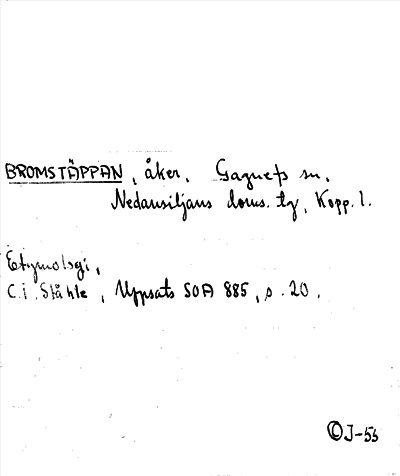 BROMSTÄPPAN, åker, Gagnefs sn.
Nedansiljans doms. tg, Kopp. l.
Etymologi,
C.I. Ståhle, Uppsats SOA 885, s. 20.
©J-55